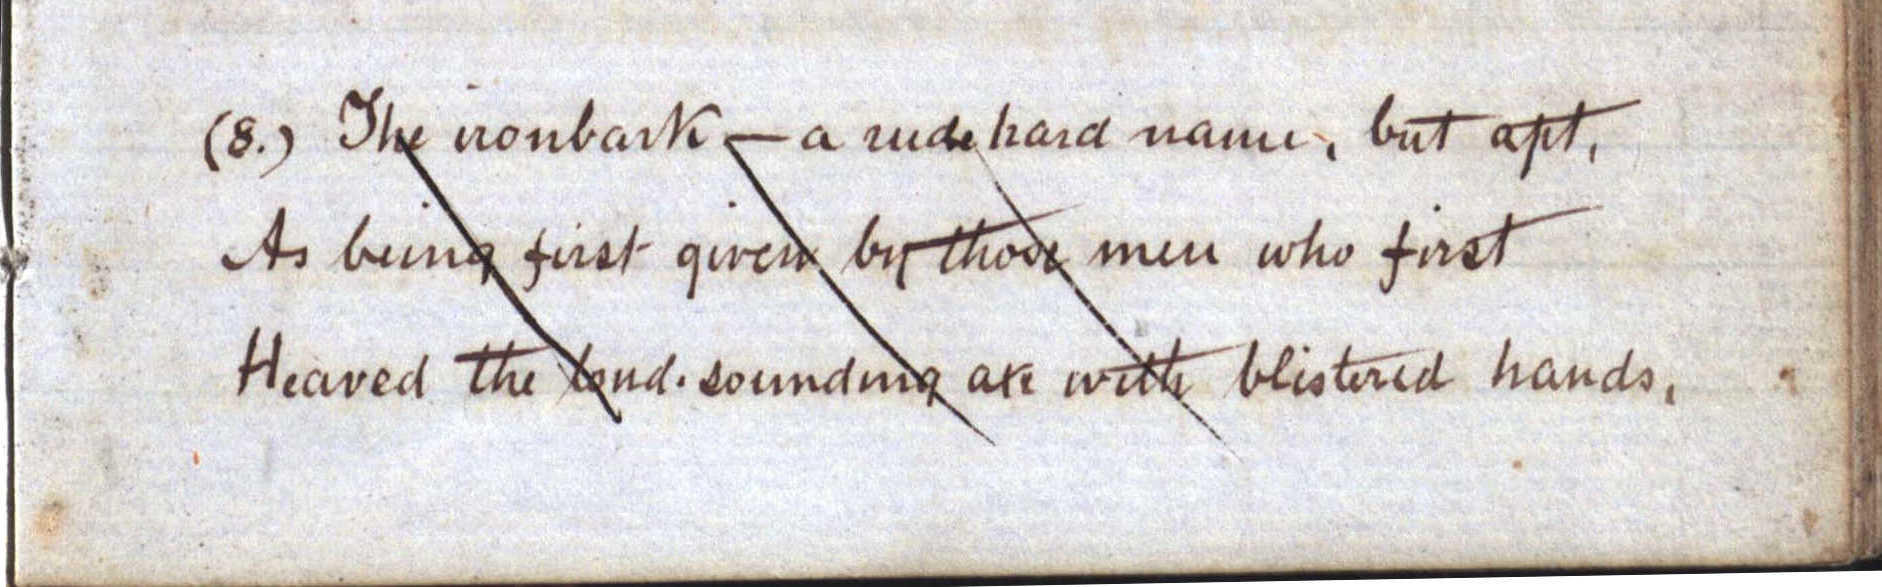 (8.) The ironbark — a rude hard name, but apt,
As being first given by those men who first
Heaved the loud-sounding axe with blistered hands,